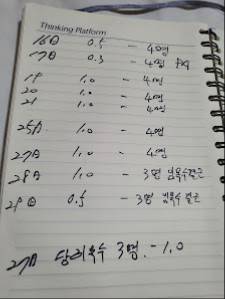 Thinking Platform
16일 0.5 - 4명
17일 0.5 - 4명
19 1.0 - 4명
20 1.0 - 4명
21 1.0 - 4명
25일 1.0 - 4명
27일 1.0 - 4명
28일 1.0 - 3명 결근
29일 0.5 - 3명 결근
27일 3명 - 1.0